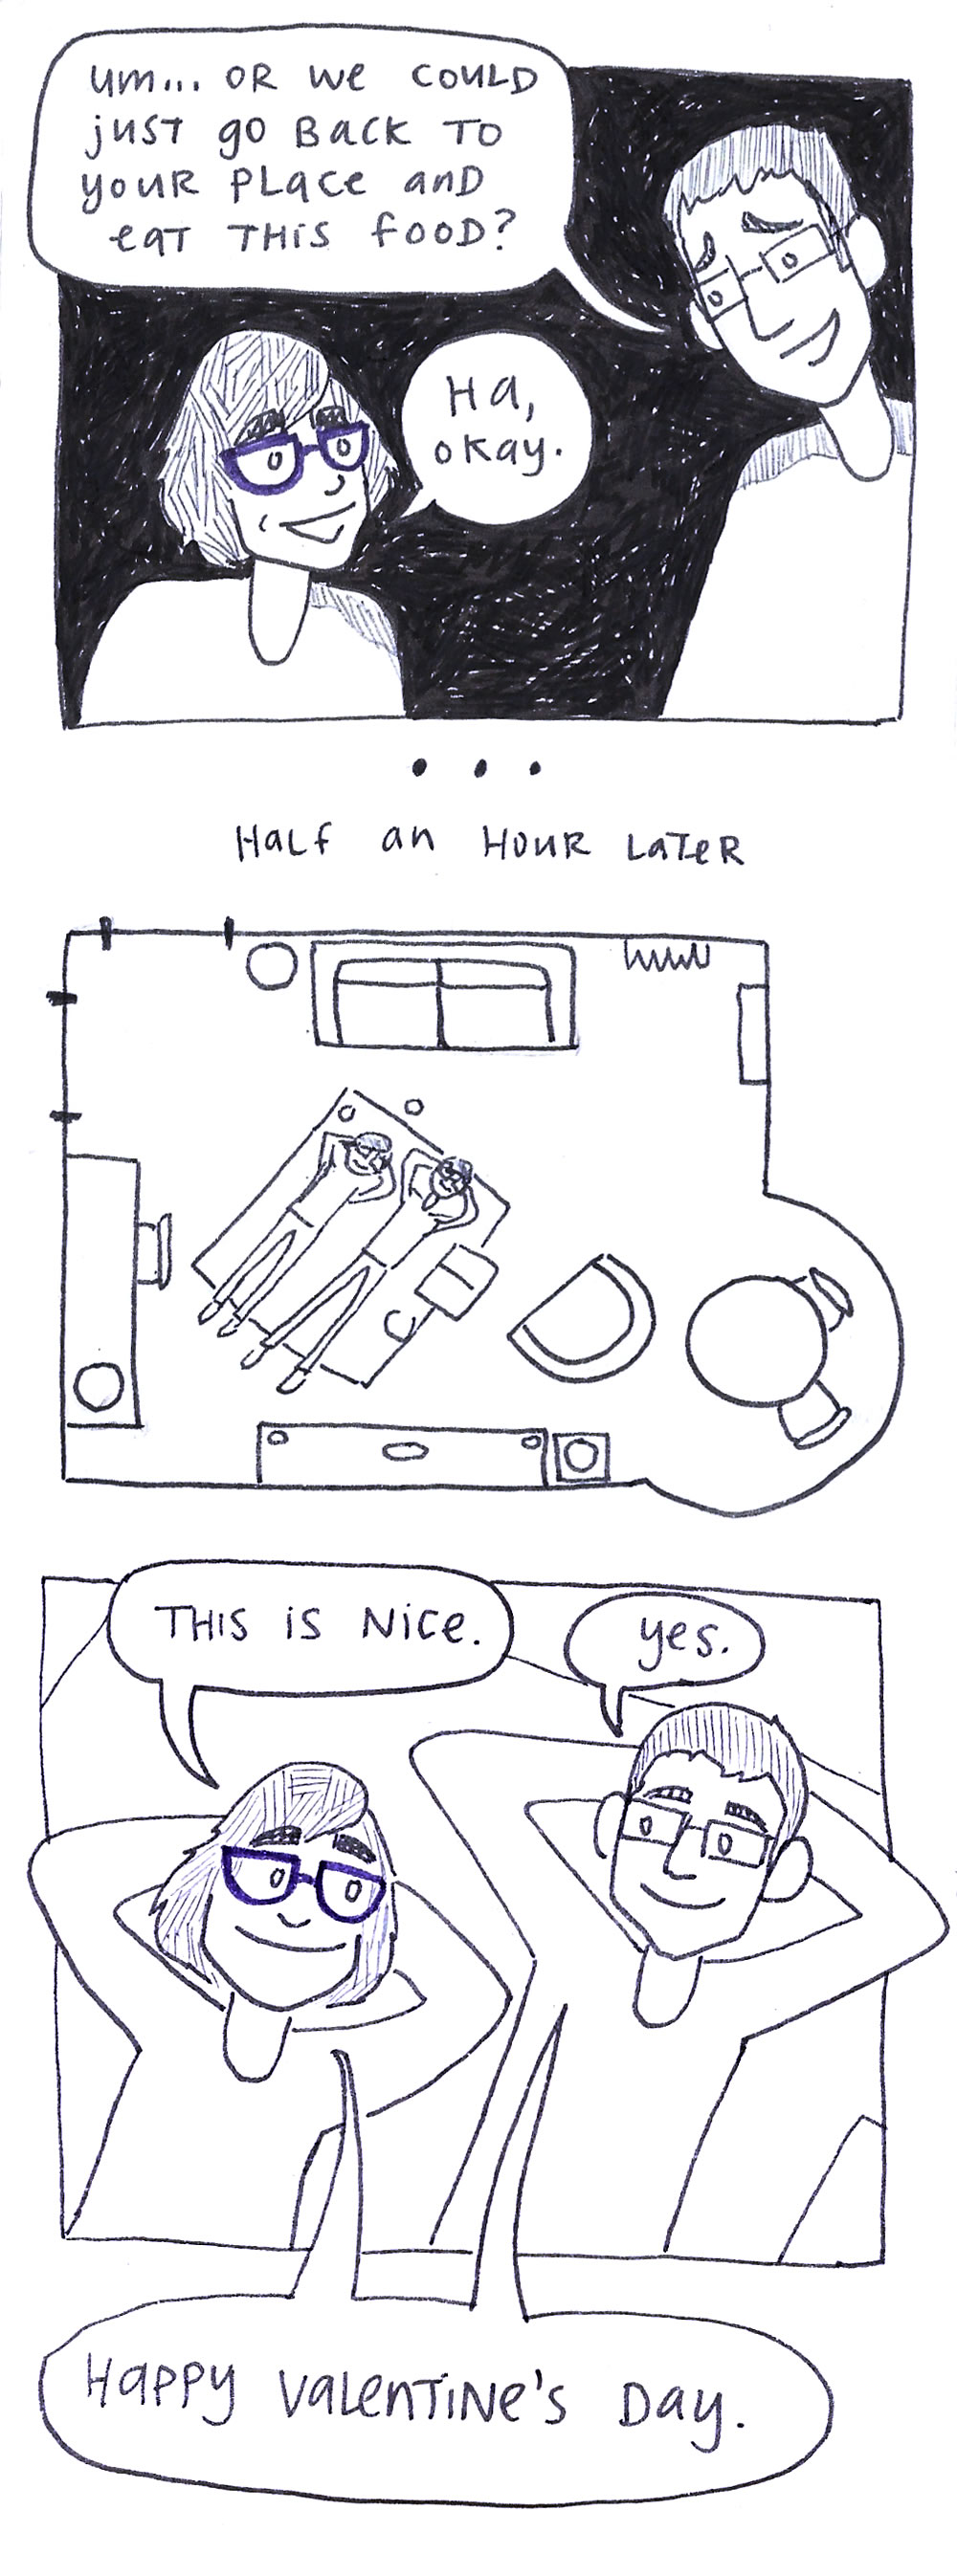 um... OR we COULD
just go Back TO
your PLace anD
eat THis fOOD?
Ha,
okay.
• • •
HaLf an HOUR LaTeR
THIS iS Nice.
yes.
Happy ValenTiNe's Day.